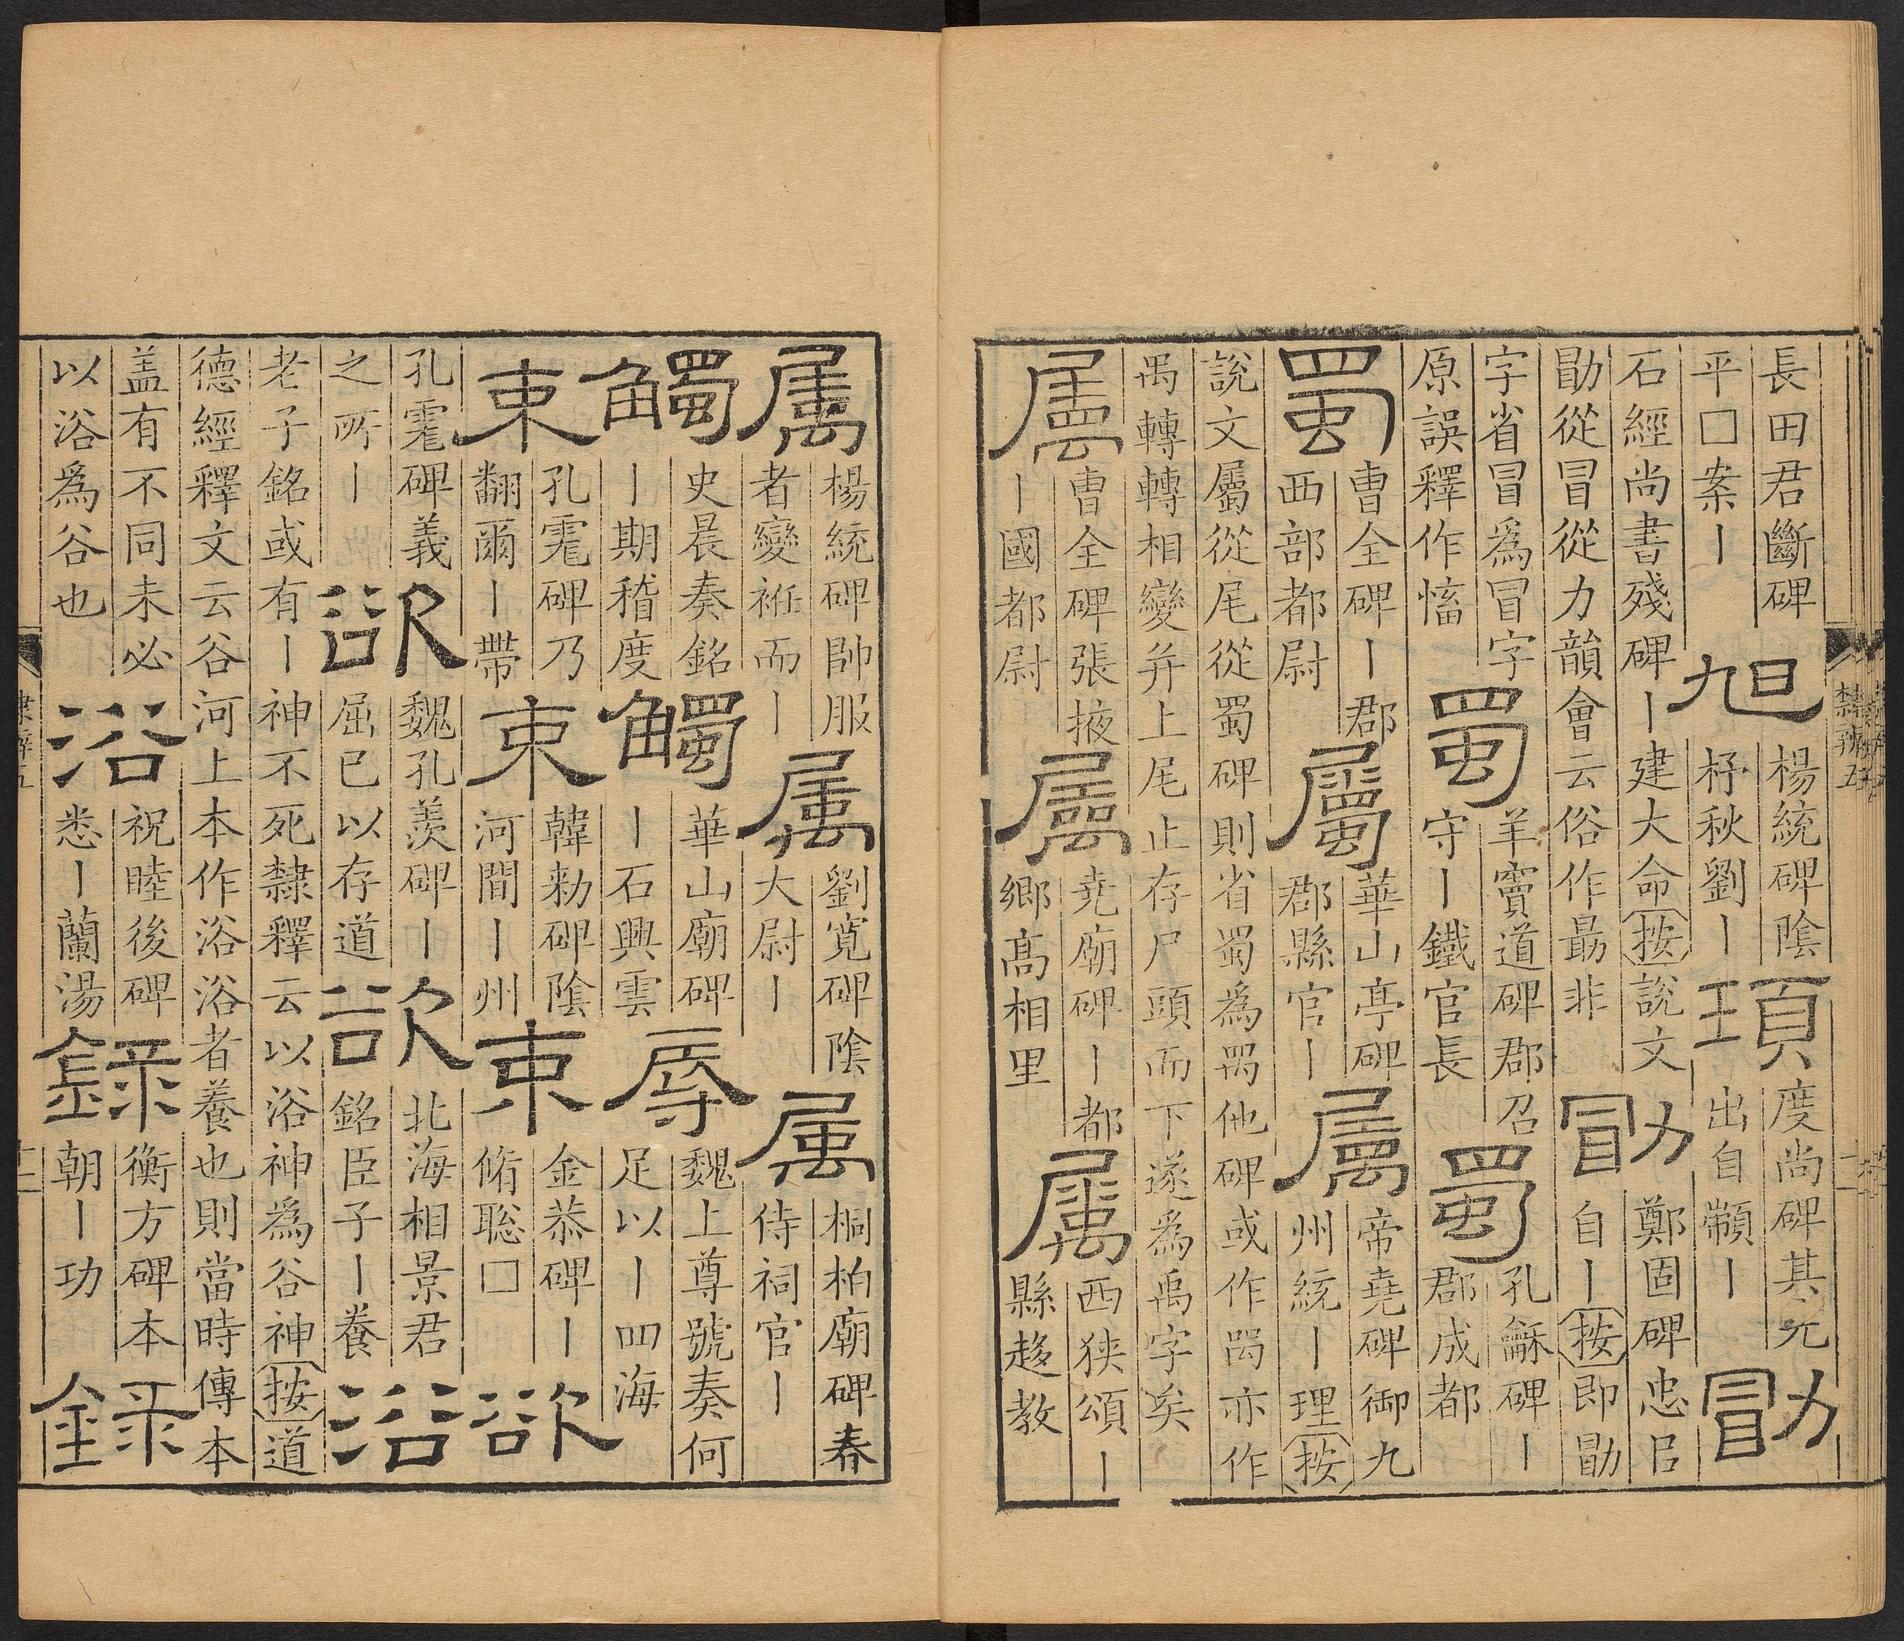 長田君斷碑
平□案〡
旭
楊統碑陰
杼秋劉〡
頊
度尚碑其先
出自顓〡
勖
石經尚書殘碑〡建大命按說文
勖從冒從力韻會云俗作勗非
勖
鄭固碑忠㠯
自〡按即勖
字省冒爲冐字
原誤釋作慉
蜀
羊竇道碑郡召
守〡鐵官長
蜀
孔龢碑〡
郡成都
蜀
曹全碑〡郡
西部都尉
屬
華山亭碑
郡縣官〡
屬
帝堯碑御九
州統〡理按
說文屬從尾從蜀碑則省蜀爲他碑或作亦作
禺轉轉相變并上尾止存尸頭而下遂爲禹字矣
屬
曹全碑張掖
〡國都尉
屬
堯廟碑〡都
鄉高相里
屬
西狹頌〡
縣趍教
隸辨五
屬
楊統碑帥服
者變衽而〡
屬
劉寬碑陰
大尉〡
屬
桐柏廟碑春
侍祠官〡
觸
史晨奏銘
〡期稽度
觸
華山廟碑
〡石興雲
辱
魏上尊號奏何
足以〡四海
束
孔碑乃
翻爾〡帶
束
韓勑碑陰
河間〡州
束
金恭碑〡
脩聡□
欲
孔碑義
之所〡
欲
魏孔羨碑〡
屈已以存道
欲
北海相景君
銘臣子〡養
浴
老子銘或有〡神不死隸釋云以浴神爲谷神按道
德經釋文云谷河上本作浴浴者養也則當時傳本
蓋有不同未必
以浴爲谷也
浴
祝睦後碑
悉〡蘭湯
錄
衡方碑本
朝〡功
錄
隸辨五
十二